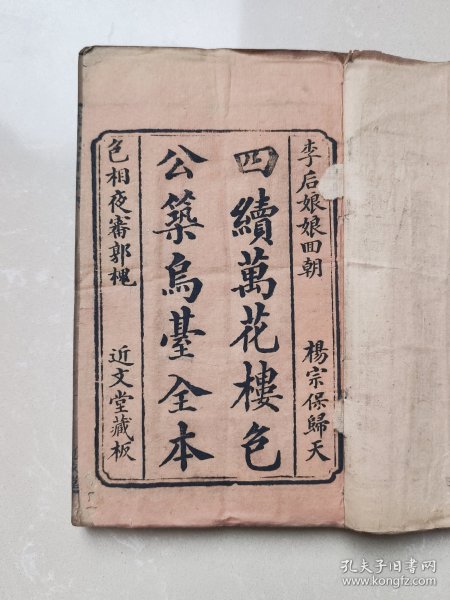 李后娘娘回朝 楊宗保歸天
四續萬花樓色
公築烏䑓全本
色相夜審郭槐 近文堂藏板
孔夫子旧书网
www.kongfz.com